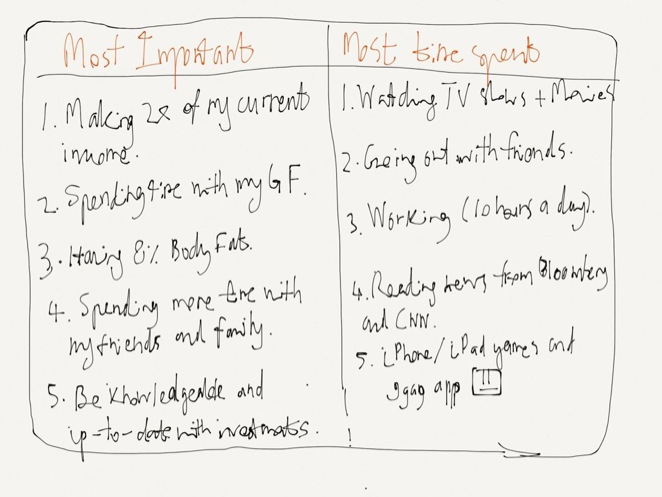 Most Important
1. Making 2x of my current
income.
2. Spending time with my GF.
3. Having 8% Body Fats.
4. Spending more time with
my friends and family.
5. Be knowledgeable and
up-to-date with investments.
Most time spent
1. Watching TV shows + Movies
2. Going out with friends.
3. Working (10 hours a day).
4. Reading news from Bloomberg
and CNN.
5. iPhone/iPad games and
9gag app